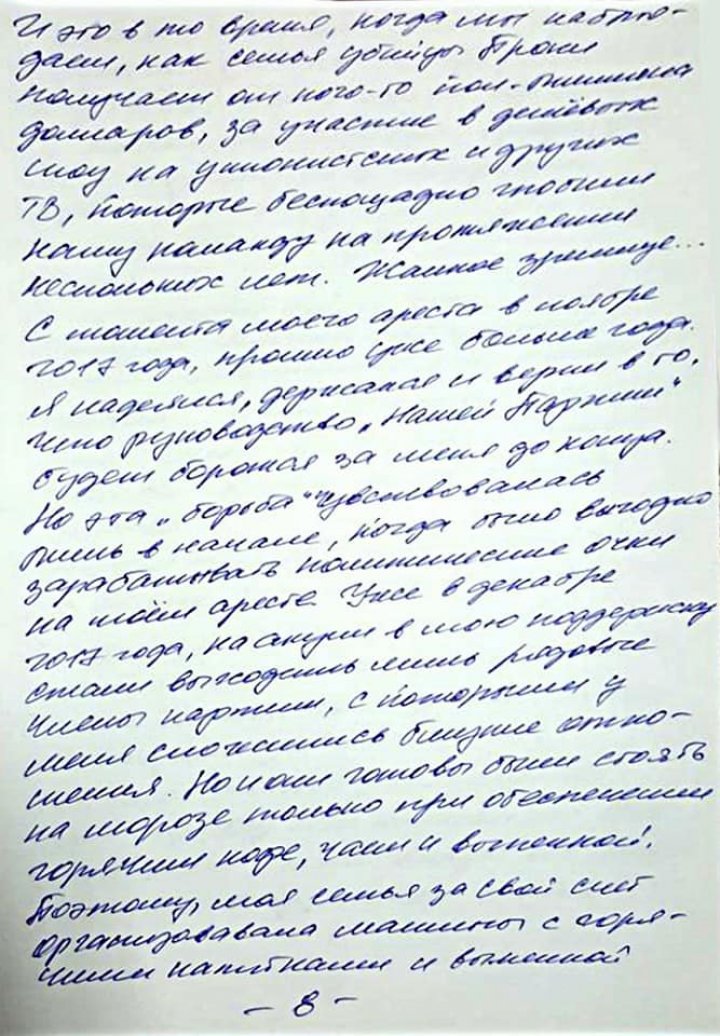 И это в то время, когда мы наблю-
даем, как семья убийцы Брони
получает от кого-то пол-миллиона
долларов, за участие в дешёвых
шоу на унионистских и других
ТВ, которые беспощадно гнобили
нашу команду на протяжении
нескольких лет. Жалкое зрелище...
С момента моего ареста в ноябре
2017 года, прошло уже больше года.
Я надеялся, держался и верил в то,
что руководство „Нашей Партии"
будет бороться за меня до конца.
Но эта „борьба" чувствовалась
лишь в начале, когда было выгодно
зарабатывать политические очки
на моём аресте. Уже в декабре
2017 года, на акции в мою поддержку
стали выходить лишь рядовые
члены партии, с которыми у
меня сложились близкие отно-
шения. Но и они готовы были стоять
на морозе только при обеспечении
горячим кофе, чаем и выпечкой.
Поэтому, моя семья за свой счет
организовавала машины с горя-
чими напитками и выпечкой
- 8 -